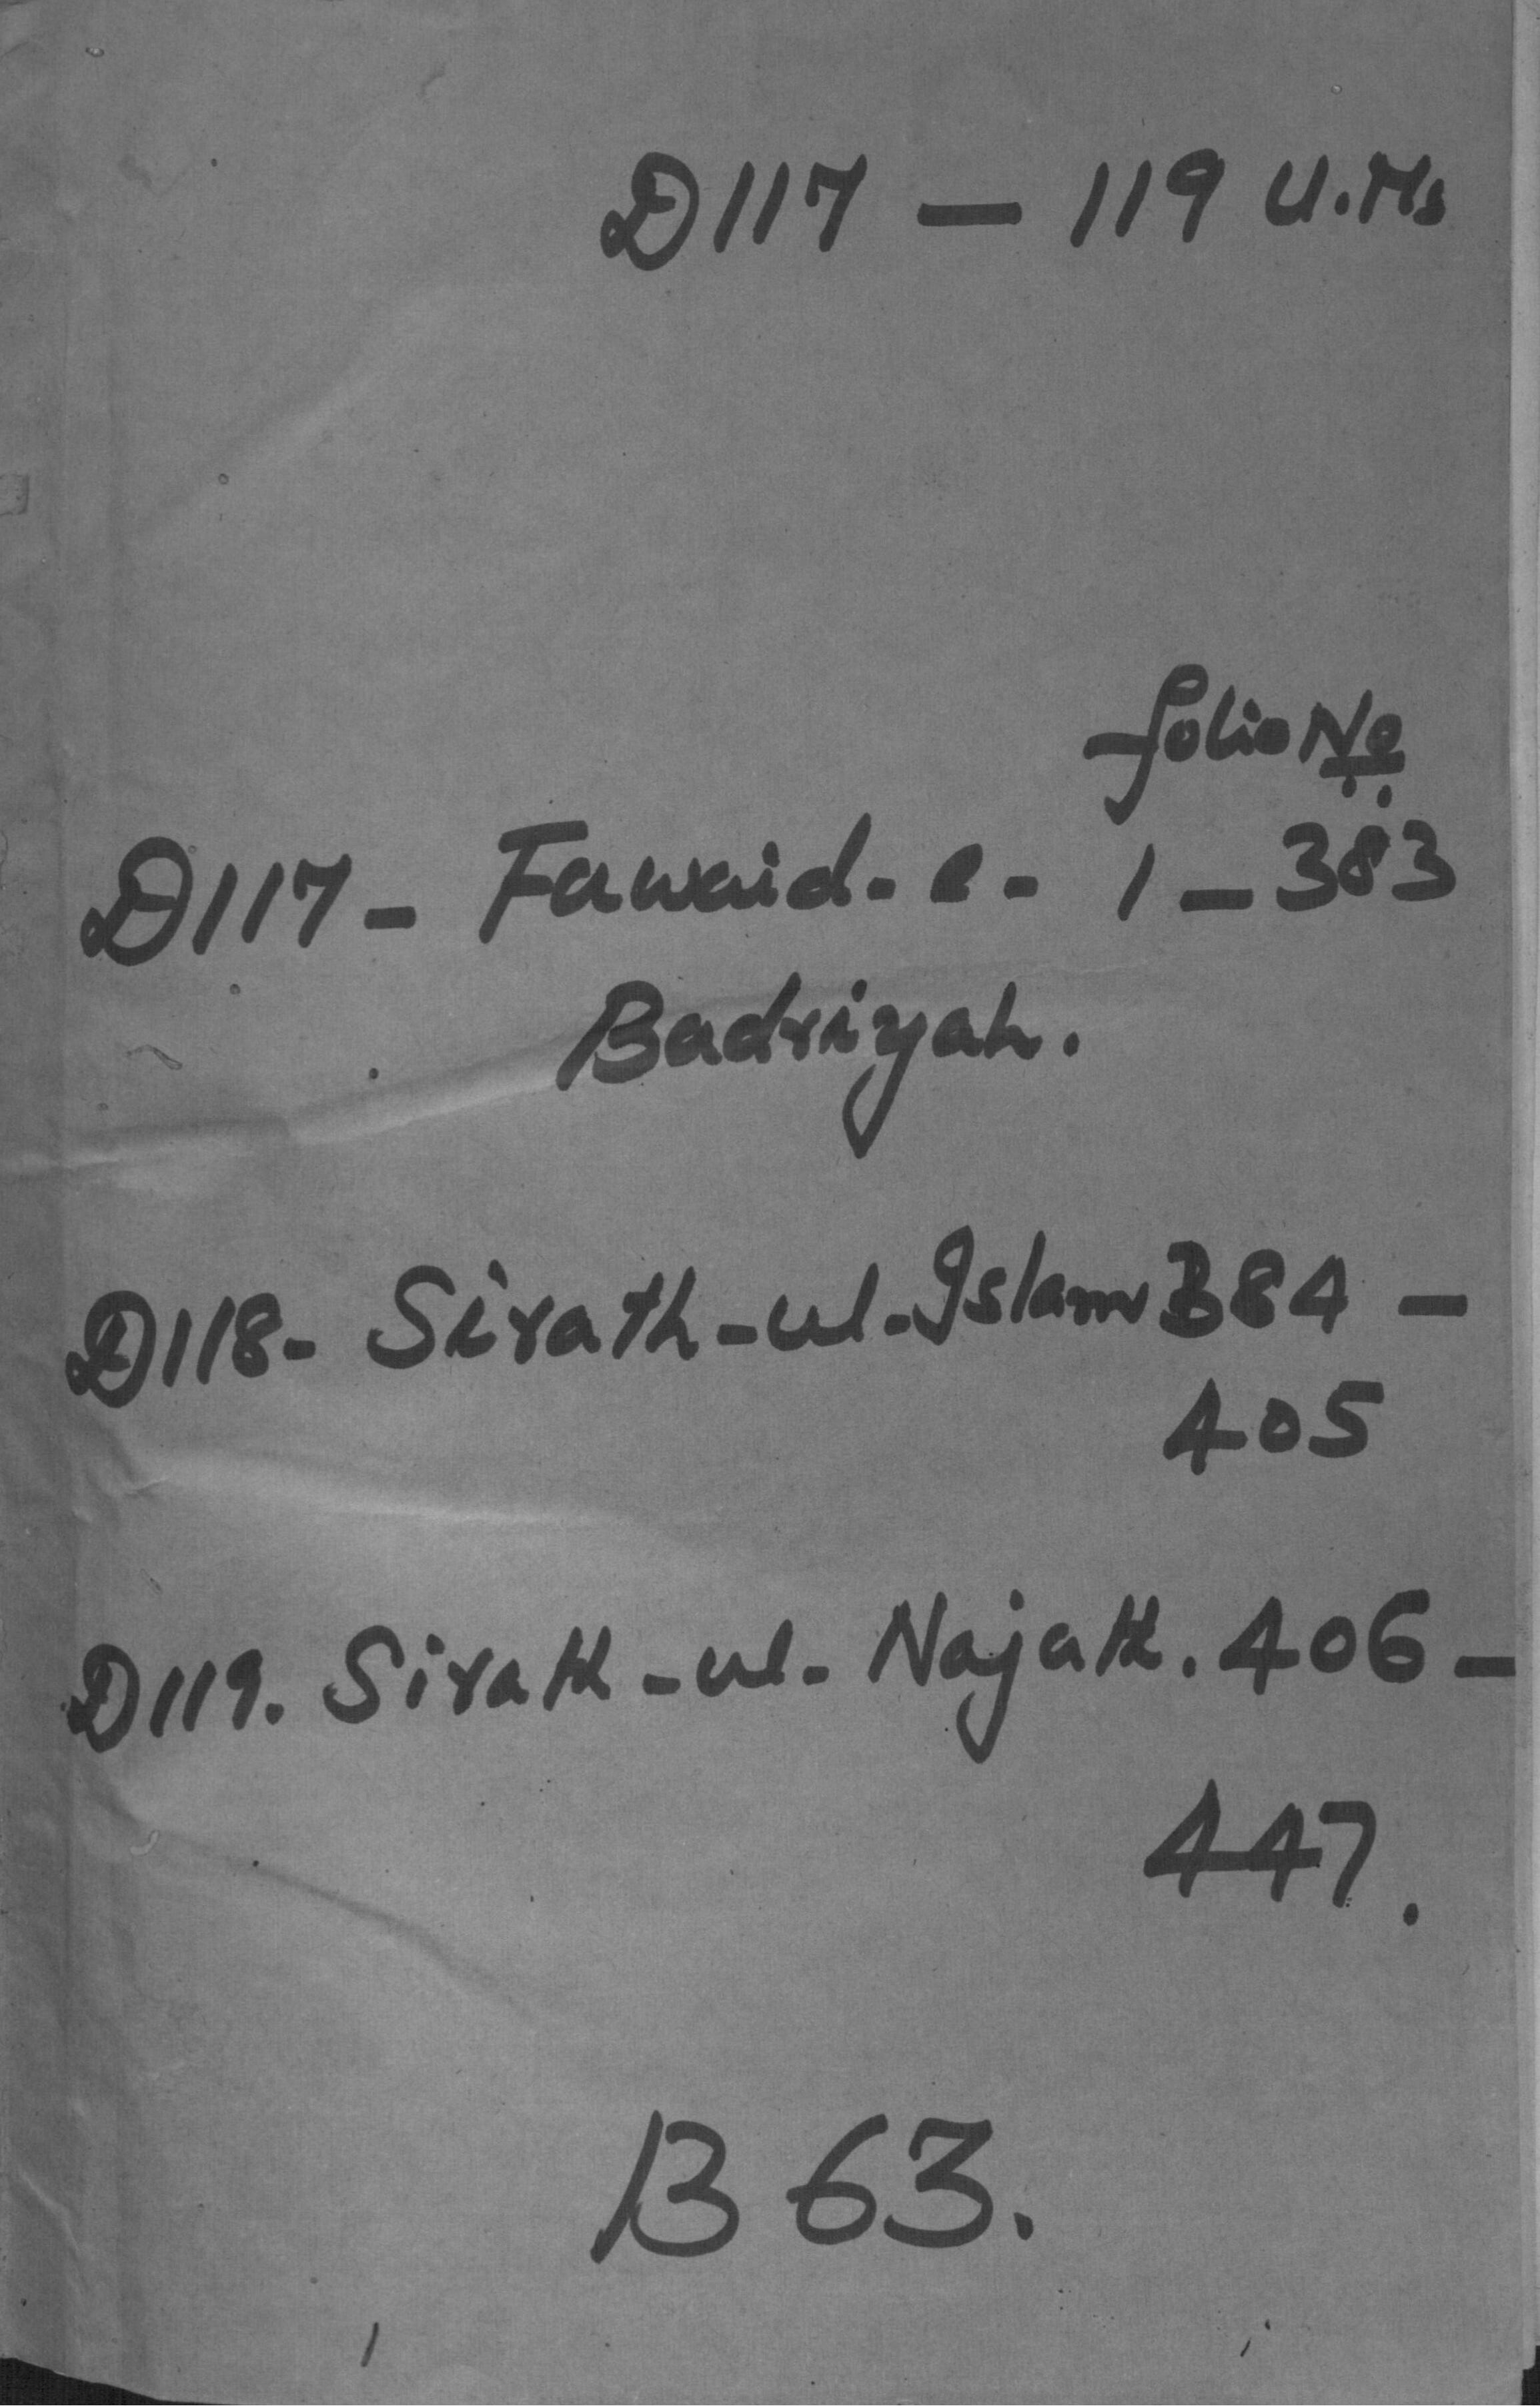 D117 — 119 U.Ms
folio No
D117 - Fawaid - e - 1 - 383
Badriyah.
D118 - Sirath - ul - Islam 384 -
405
D119. Sirath - ul - Najath. 406 -
447.
B 63.